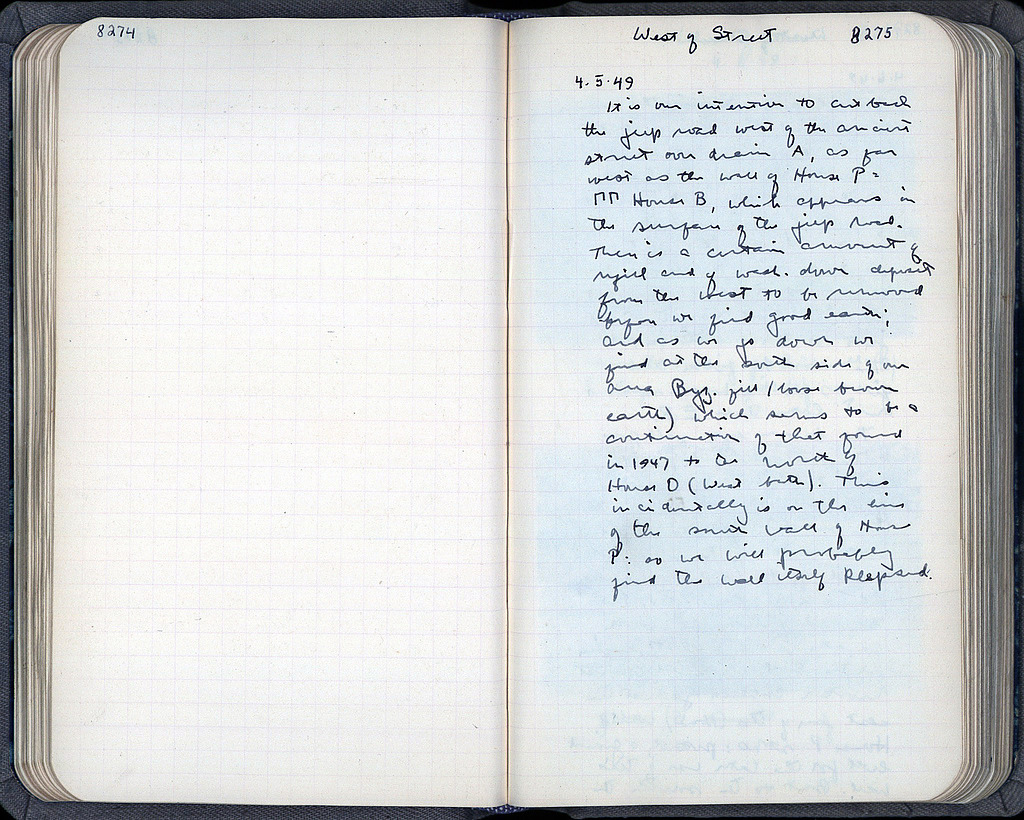 8274
West of Street 8275
4.5.49
It is our intention to cut back
the jeep road west of the ancient
street over drain A, as far
west as the wall of House P =
ΠΠ House B, which appears in
the surface of the jeep road.
There is a certain amount of
refill and of wash-down deposit
from the west to be removed
before we find good earth;
and as we go down we
find at the south side of our
area Byz. fill (loose brown
earth) which seems to be a
continuation of that found
in 1947 to the north of
House D (West bath). This
incidentally is on the line
of the south wall of House
P: so we will probably
find the wall itself